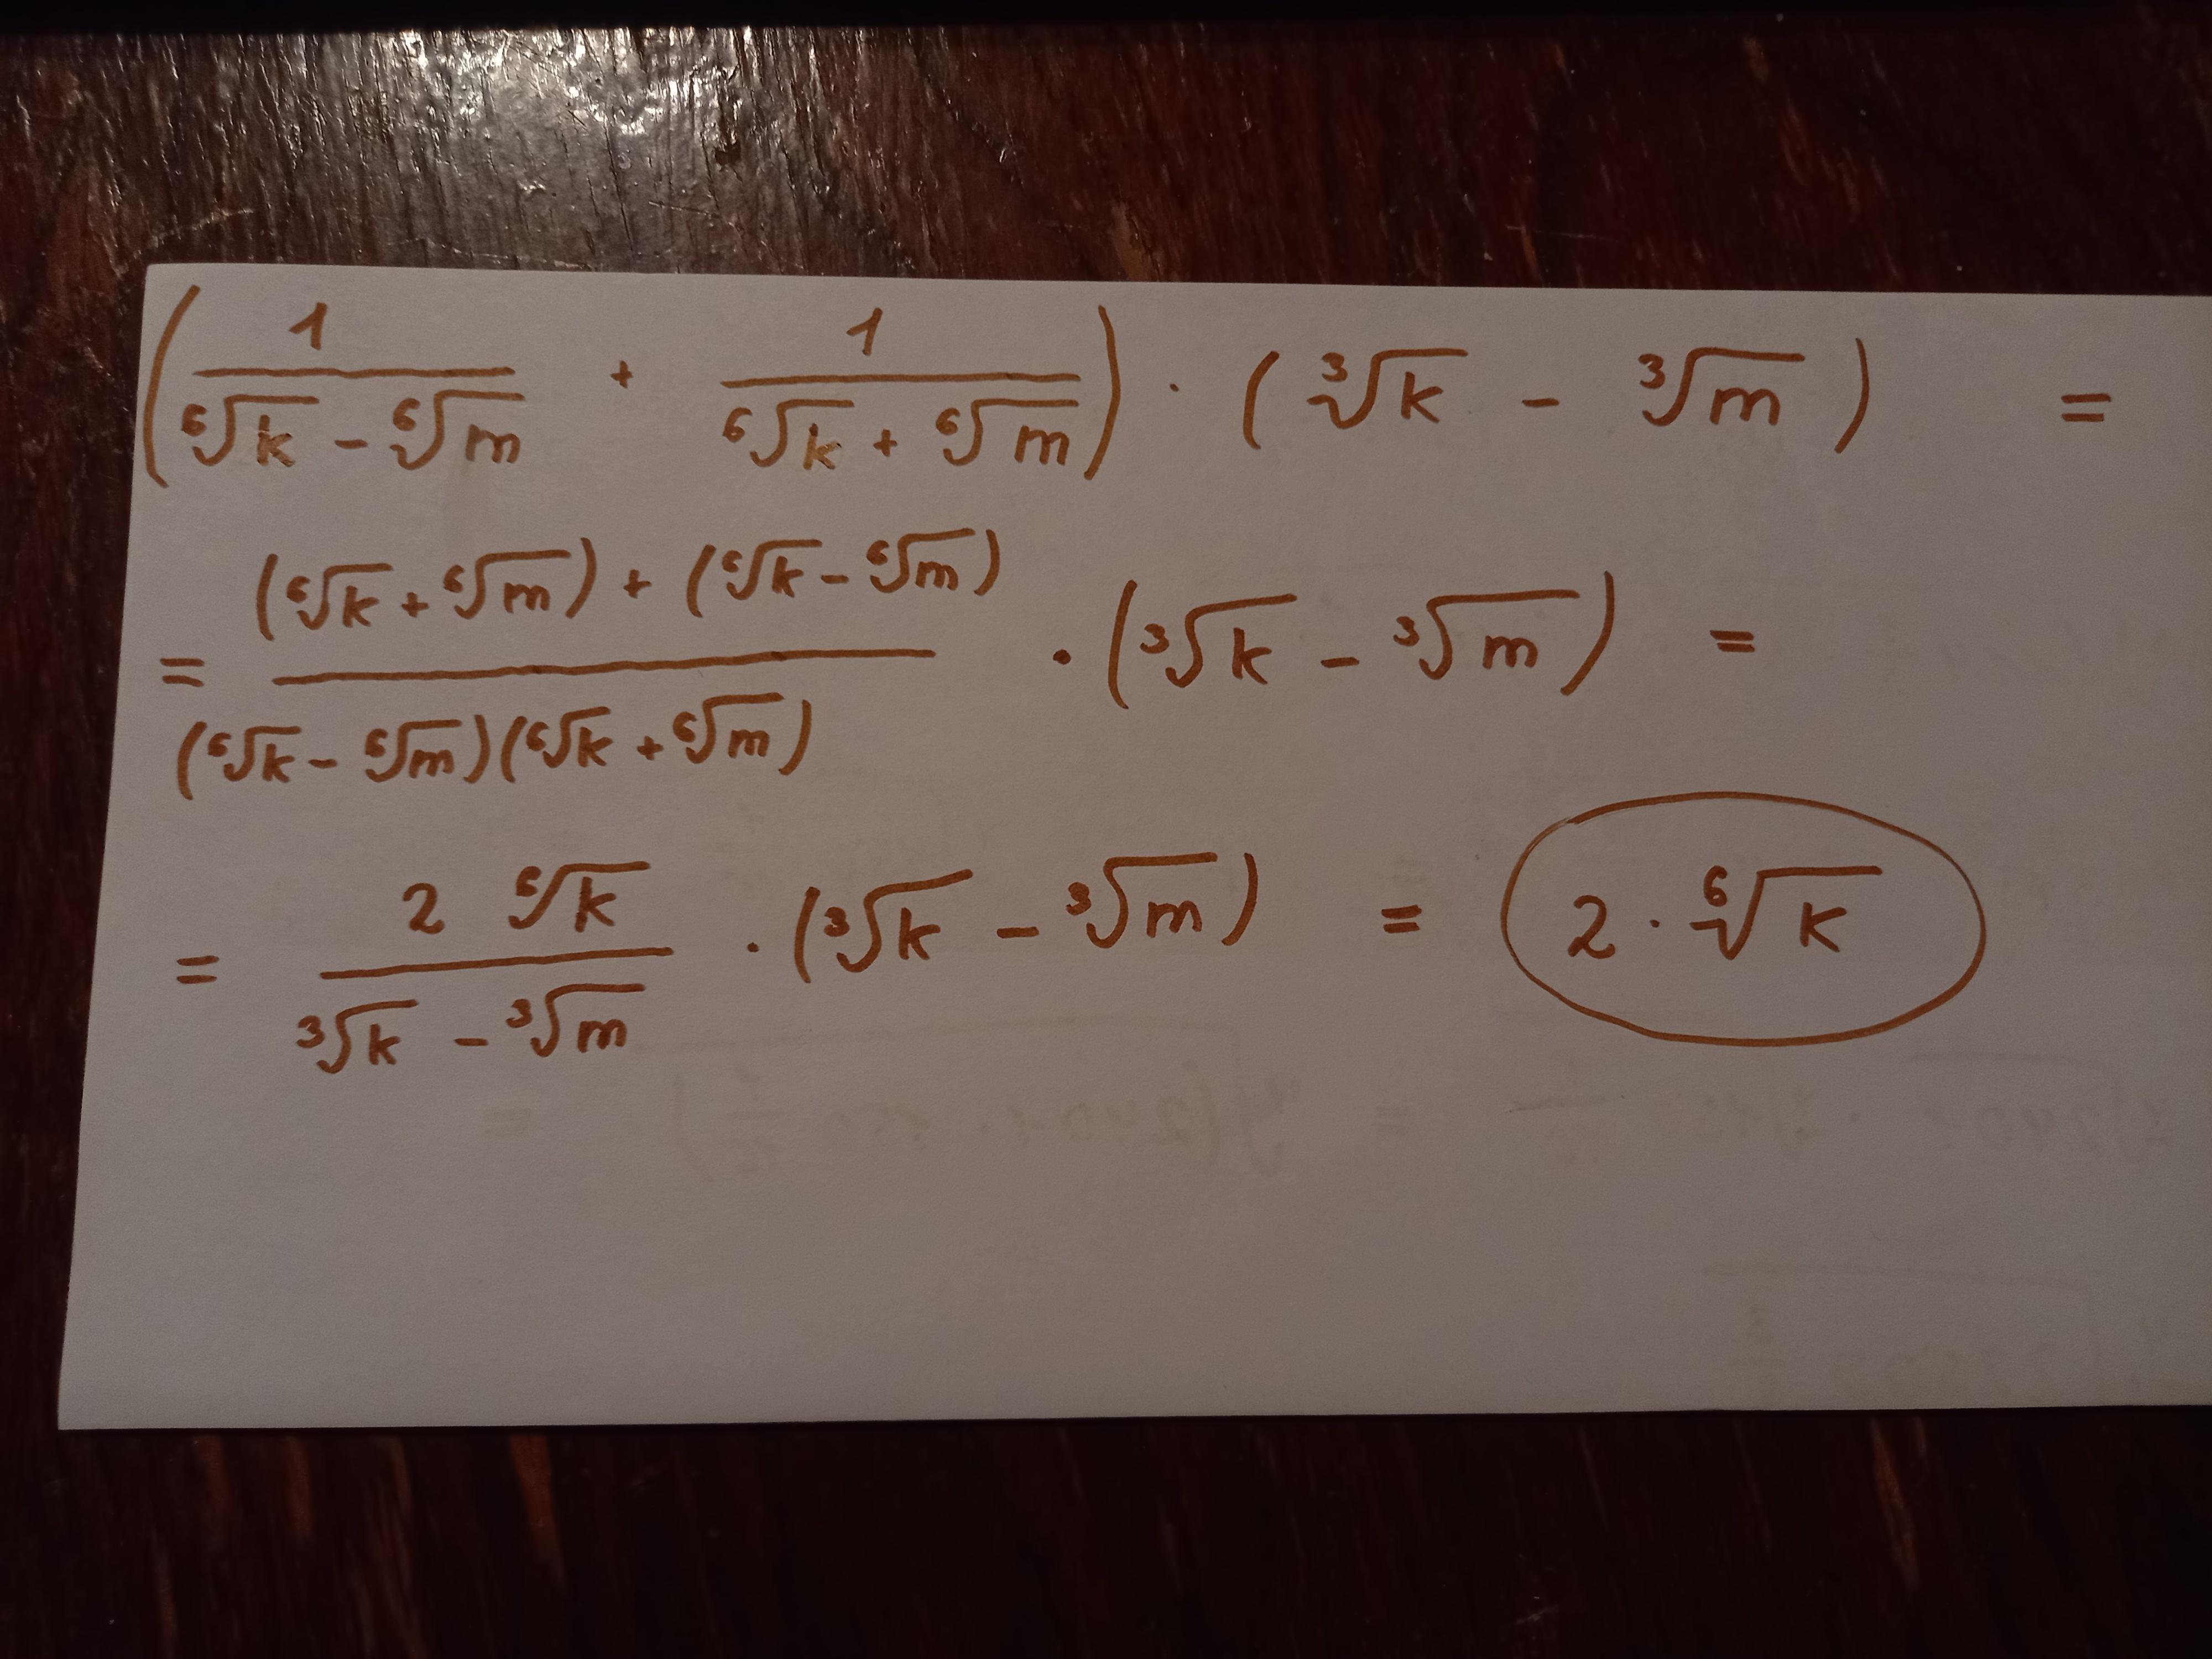 (1/(⁶√k - ⁶√m) + 1/(⁶√k + ⁶√m)) · (³√k - ³√m) =
= ((⁶√k + ⁶√m) + (⁶√k - ⁶√m))/((⁶√k - ⁶√m)(⁶√k + ⁶√m)) · (³√k - ³√m) =
= (2 ⁶√k)/(³√k - ³√m) · (³√k - ³√m) = 2 · ⁶√k